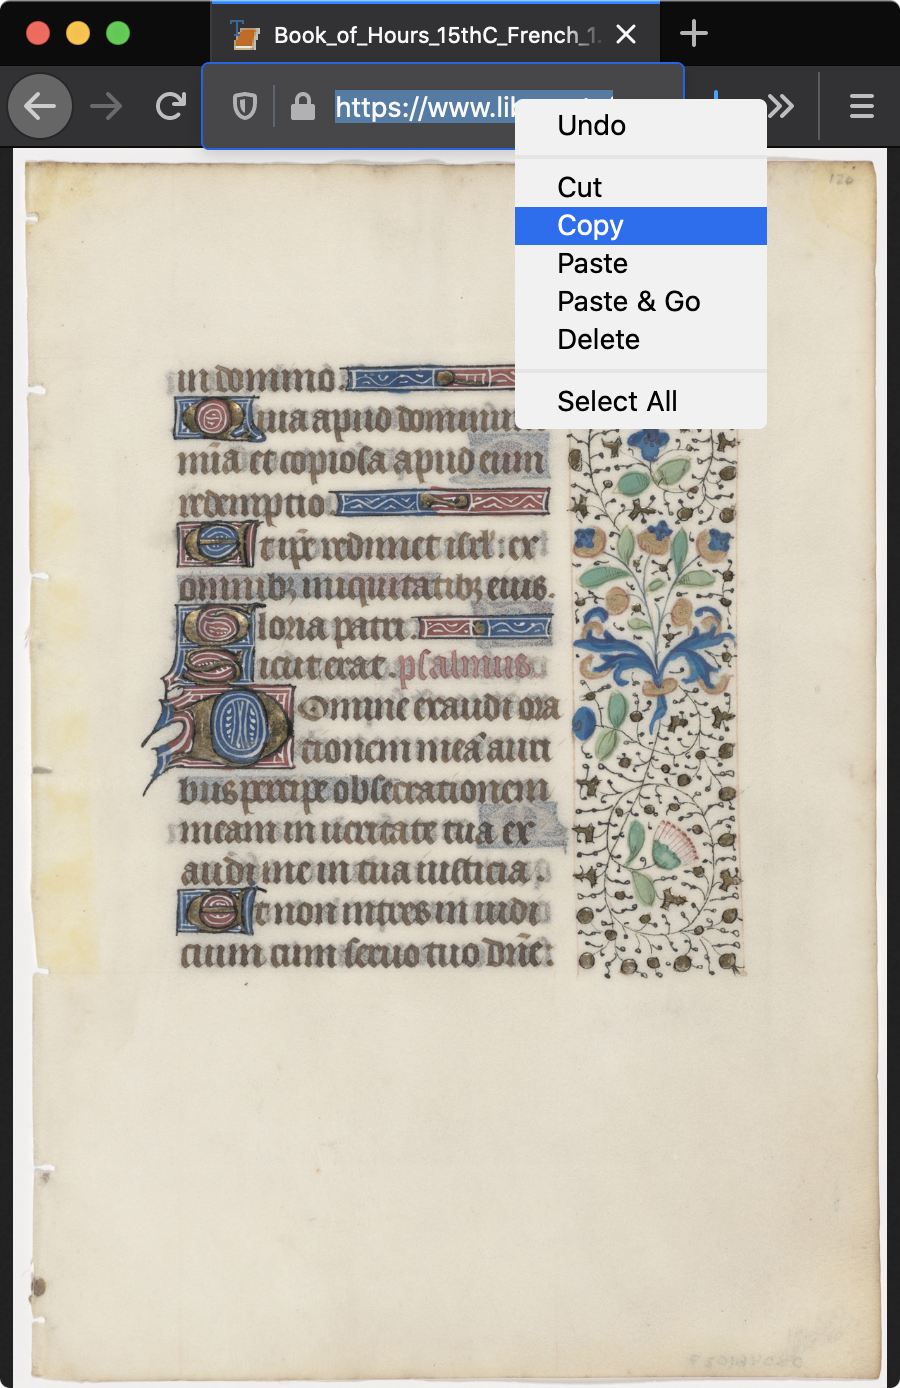 Book_of_Hours_15thC_French_1.
https://www.lib
Undo
Cut
Copy
Paste
Paste & Go
Delete
Select All
120
in domino.
Quia apud dominum
mĩa et copiosa apud eum
redemptio.
Et ip̃e redimet isrl̃: ex
omnibꝫ iniquitatibꝫ eius.
Gloria patri.
Sicut erat. psalmus.
Domine exaudi ora
tionem meã auri
bus percipe obsecrationem
meam in ueritate tua ex
audi me in tua iusticia.
Et non intres in iudi
cium cum seruo tuo dñe: